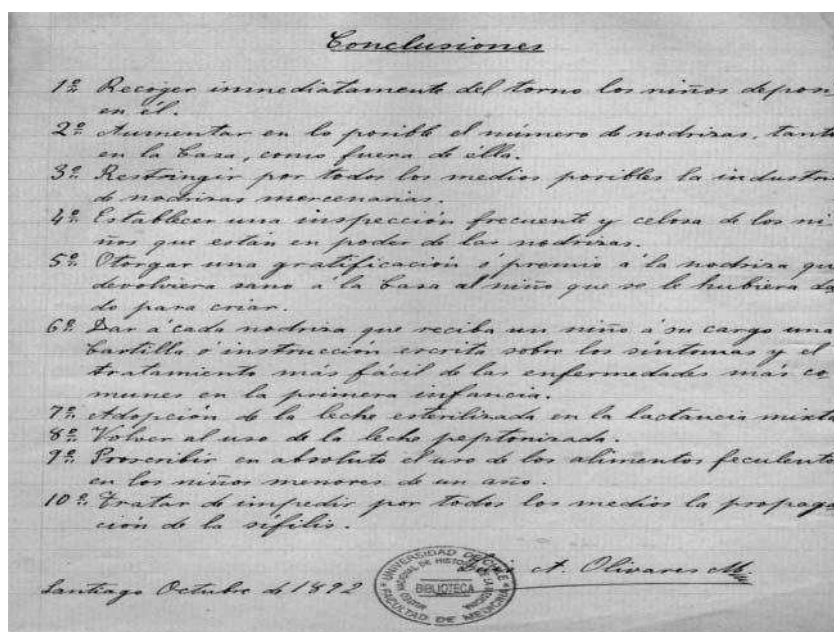 Conclusiones
1º Recoger inmediatamente del torno los niños depos
en él.
2º Aumentar en lo posible el número de nodrizas, tanto
en la Casa, como fuera de élla.
3º Restringir por todos los medios posibles la industri
de nodrizas mercenarias.
4º Establecer una inspección frecuente y celosa de los ni-
ños que están en poder de las nodrizas.
5º Otorgar una gratificación ó premio á la nodriza que
devolviera sano á la Casa al niño que se le hubiera da
do para criar.
6º Dar á cada nodriza que reciba un niño á su cargo una
Cartilla ó instrucción escrita sobre los síntomas y el
tratamiento más fácil de las enfermedades más co
munes en la primera infancia.
7º Adopción de la leche esterilizada en la lactancia mixta
8º Volver al uso de la leche peptonizada.
9º Proscribir en absoluto el uso de los alimentos feculento
en los niños menores de un año.
10º Tratar de impedir por todos los medios la propaga
ción de la sífilis.
A. Olivares M.
Santiago Octubre de 1892
UNIVERSIDAD DE CHILE
BIBLIOTECA
FACULTAD DE MEDICINA